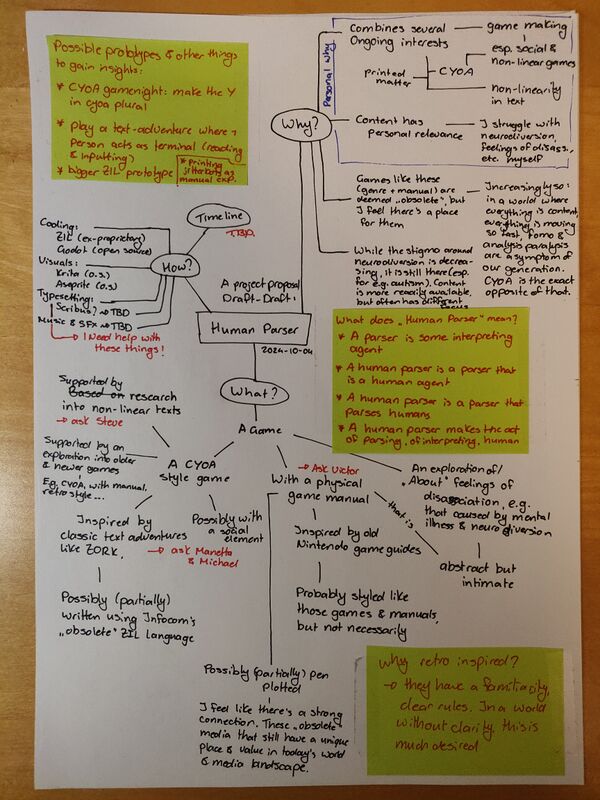 Possible prototypes & other things
to gain insights:
* CYOA gamenight: make the Y
in cyoa plural
* Play a text-adventure where 1
person acts as terminal (reading
& inputting)
* bigger ZIL prototype
* printing
jitterbots as
manual exp.
Personal why
Why?
Combines several
Ongoing interests
game making
esp. social &
non-linear games
printed
matter
CYOA
non-linearity
in text
Content has
personal relevance
I struggle with
neurodiversion,
feelings of disass.,
etc. myself
Games like these
(genre + manual) are
deemed „obsolete", but
I feel there's a place
for them
Increasingly so:
in a world where
everything is content,
everything is moving
so fast, fomo &
analysis paralysis
are a symptom of
our generation.
CYOA is the exact
opposite of that.
While the stigma around
neurodiversion is decrea-
sing, it is still there (esp.
for e.g. autism). Content
is more readily available,
but often has different
focus
Timeline
TBD.
How?
Coding:
ZIL (ex-proprietary)
Godot (open source)
Visuals:
Krita (o.s.)
Asprite (o.s)
Typesetting:
Scribus? → TBD
Music & SFX → TBD
→ I need help with
these things!
A project proposal
Draft-Draft:
Human Parser
2024-10-04
What does „Human Parser" mean?
* A parser is some interpreting
agent
* A human parser is a parser that
is a human agent
* A human parser is a parser that
parses humans
* A human parser makes the act
of parsing, of interpreting, human
What?
A Game
Supported by
Based on research
into non-linear texts
→ ask Steve
Supported by an
exploration into older
& newer games
E.g. CYOA, with manual,
retro style....
A CYOA
style game
Inspired by
classic text adventures
like ZORK.
Possibly with
a social
element
→ ask Manetta
& Michael
Possibly (partially)
written using Infocom's
„obsolete" ZIL Language
→ Ask Victor
With a physical
game manual
Inspired by old
Nintendo game guides
Probably styled like
those games & manuals,
but not necessarily
An exploration of/
„About" feelings of
disassociation, e.g.
that caused by mental
illness & neurodiversion
that is
abstract but
intimate
Possibly (partially) pen
plotted
I feel like there's a strong
connection. These „obsolete"
media that still have a unique
place & value in today's world
& media landscape.
Why retro inspired?
→ they have a familiarity,
clear rules. In a world
without clarity, this is
much desired